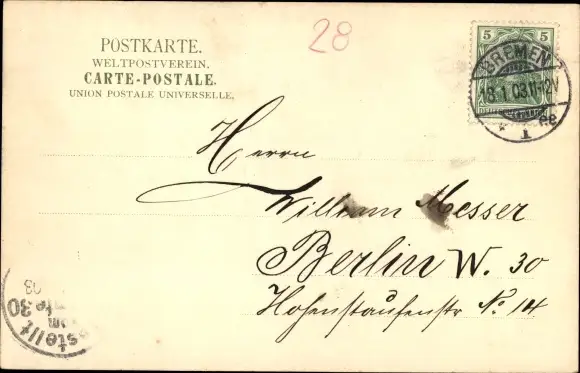 POSTKARTE.
WELTPOSTVEREIN.
CARTE-POSTALE.
UNION POSTALE UNIVERSELLE.
28
5 5
BREMEN
18.1.03.11-12V
* 1 ee
Herrn
William Messer
Berlin W. 30
Hohenstaufenstr No. 14
stellt
30
03